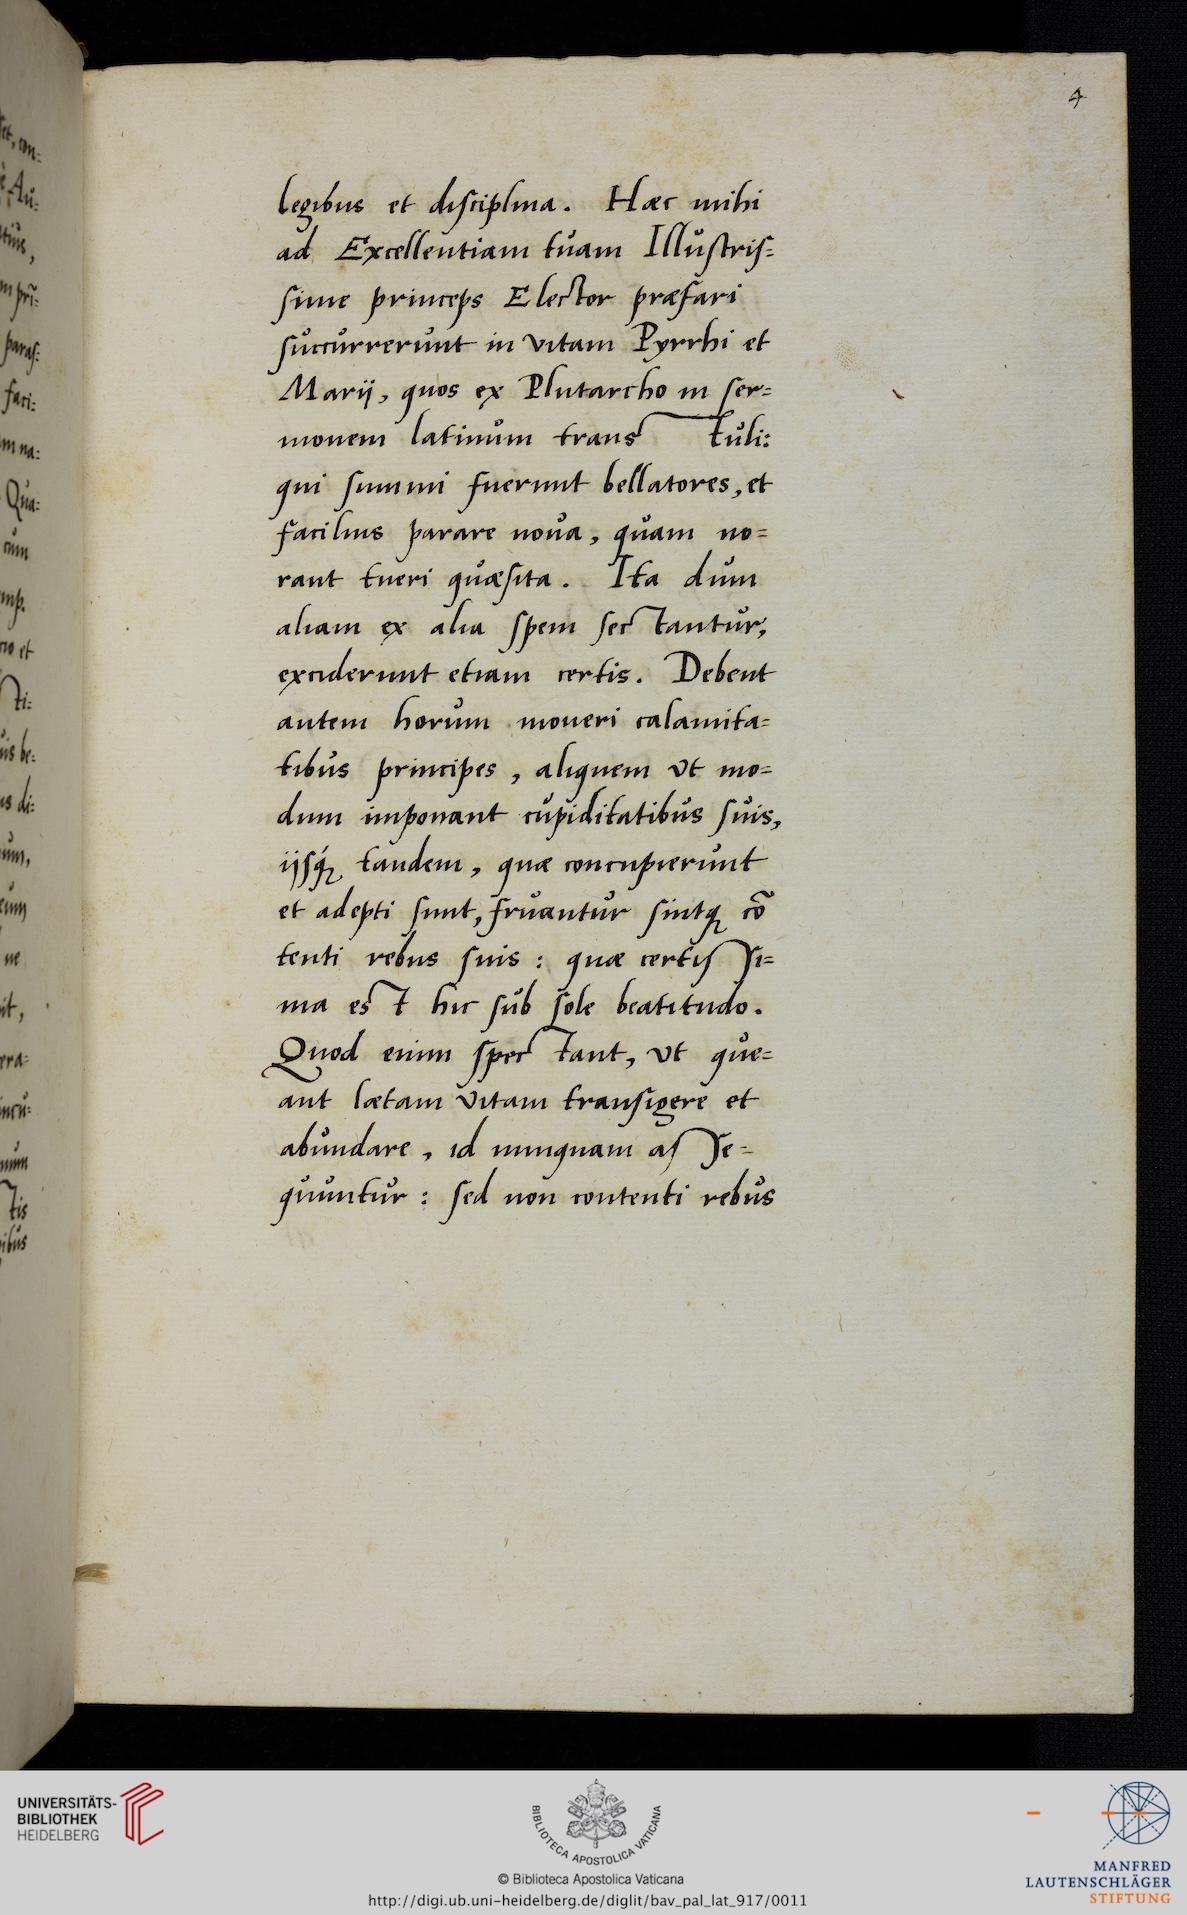 4
legibus et disciplina. Hæc mihi
ad Excellentiam tuam Illustris=
sime princeps Elector præfari
succurrerunt in vitam Pyrrhi et
Marij, quos ex Plutarcho in ser=
monem latinum transtuli:
qui summi fuerunt bellatores, et
facilius parare noua, quam no=
rant tueri quæsita. Ita dum
aliam ex alia spem sectantur,
exciderunt etiam certis. Debent
autem horum moueri calamita=
tibus principes, aliquem vt mo=
dum imponant cupiditatibus suis,
ijsq́ꝫ tandem, quæ concupierunt
et adepti sunt, fruantur sintqꝫ cō
tenti rebus suis: quæ certissi=
ma est hic sub sole beatitudo.
Quod enim spectant, vt que=
ant lætam vitam transigere et
abundare, id nunquam asse=
quuntur: sed non contenti rebus
UNIVERSITÄTS-
BIBLIOTHEK
HEIDELBERG
BIBLIOTECA APOSTOLICA VATICANA
© Biblioteca Apostolica Vaticana
http://digi.ub.uni-heidelberg.de/diglit/bav_pal_lat_917/0011
MANFRED
LAUTENSCHLÄGER
STIFTUNG